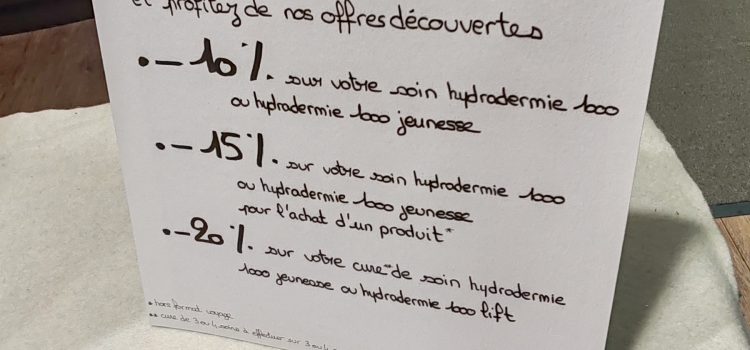 et profitez de nos offres découvertes
• -10%. sur votre soin hydradermie 1000
ou hydradermie 1000 jeunesse
• -15%. sur votre soin hydradermie 1000
ou hydradermie 1000 jeunesse
pour l'achat d'un produit*
• -20%. sur votre cure** de soin hydradermie
1000 jeunesse ou hydradermie 1000 lift
* hors format voyage
** cure de 3 ou 4 soins à effectuer sur 3 ou 4